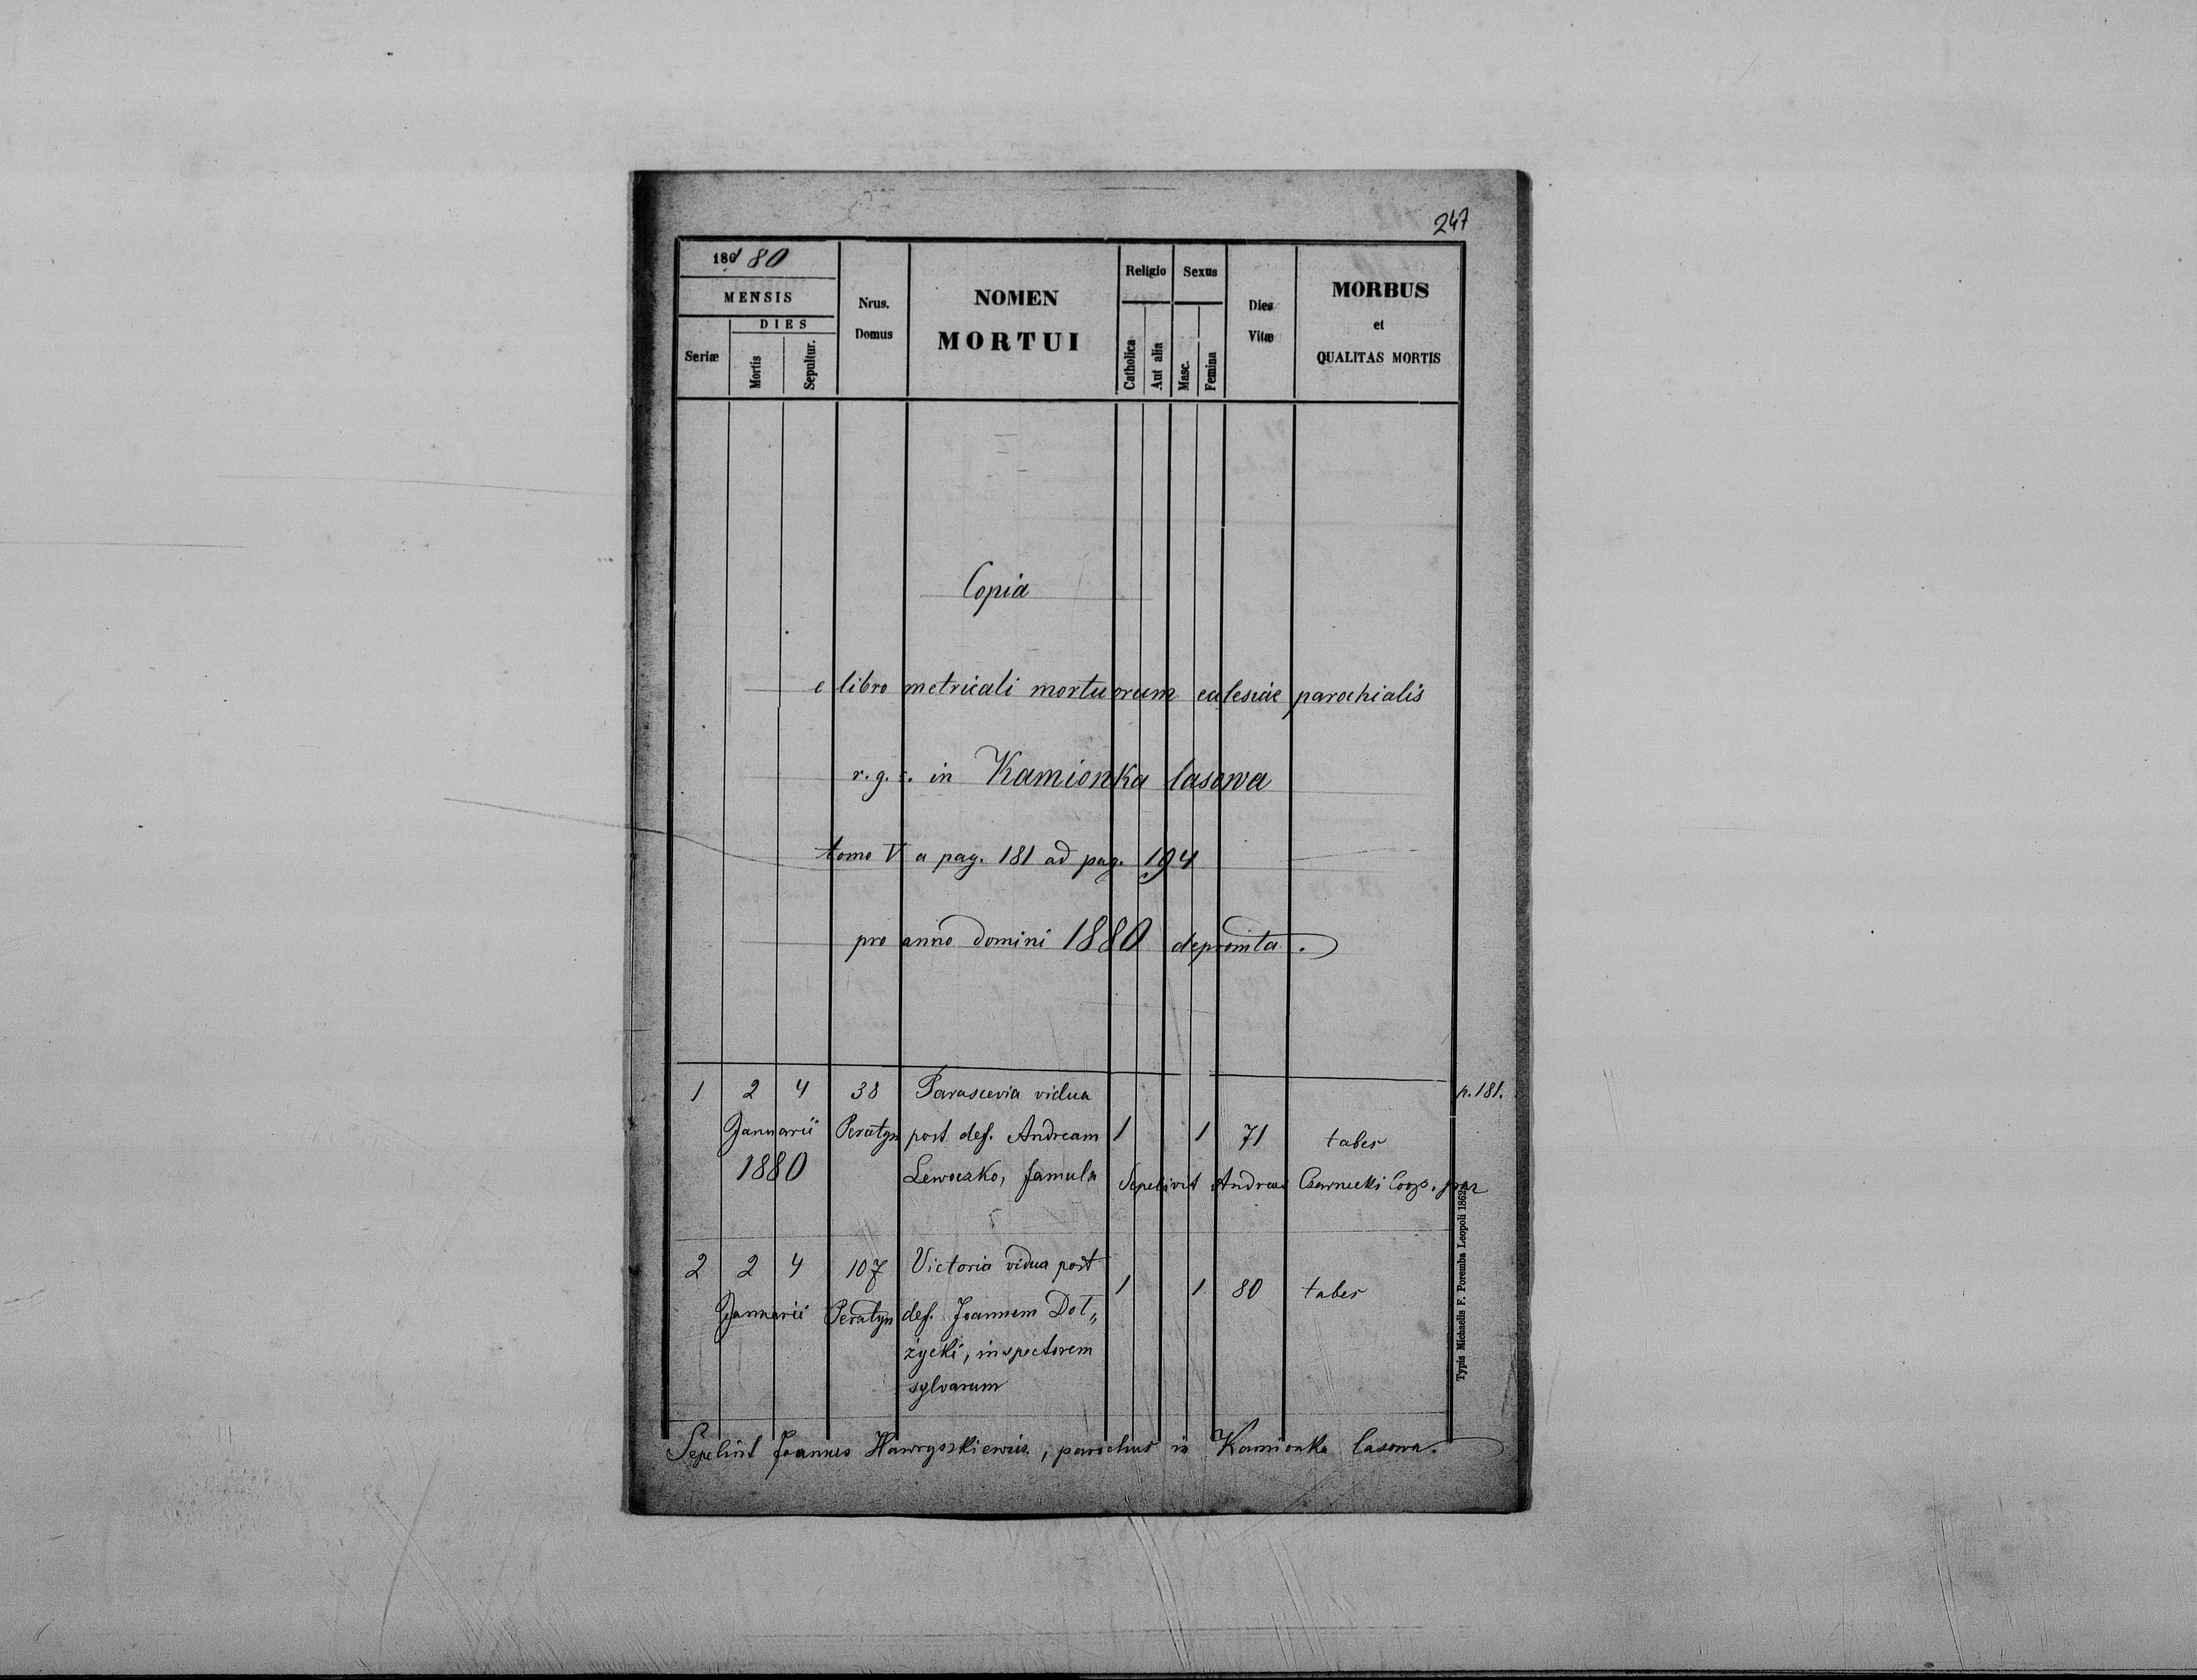 247
186 80
MENSIS
DIES
Seriæ
Mortis
Sepultur.
Nrus.
Domus
NOMEN
MORTUI
Religio
Catholica
Aut alia
Sexus
Masc.
Femina
Dies
Vitæ
MORBUS
et
QUALITAS MORTIS
Copia
e libro metricali mortuorum eclesiae parochialis
r. g. c. in Kamionka lasowa
tomo V a pag. 181 ad pag. 194
pro anno domini 1880 depromta.
1 2 4 38 Parascevia vidua p. 181.
Januarii Peratyn post def. Andream 1 1 71 tabes
1880 Lewoczko, famula Sepelivit Andreas Czarnecki Coop.
2 2 4 107 Victoria vidua post 1 1 80 tabes
Januarii Peratyn def. Joannem Doł„
życki, inspectorem
sylvarum
Sepelivit Joannes Hawryszkiewicz, parochus in Kamionka lasowa.
Typis Michaelis F. Poremba Leopoli 1862